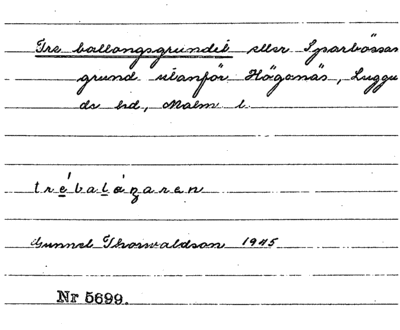 Tre ballongsgrundet eller Sparbössas
grund utanför Höganäs, Luggu
de hd, Malm l.
tré́balázaren
Gunnel Thorwaldson 1945
Nr 5699.